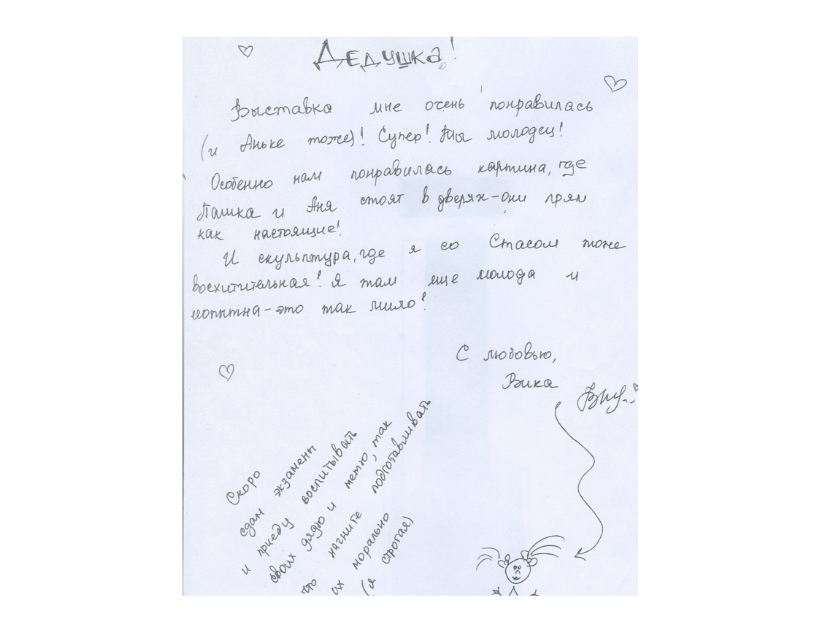 Дедушка!
Выставка мне очень понравилась
(и Аньке тоже)! Супер! Ты молодец!
Особенно нам понравилась картина, где
Пашка и Аня стоят в дверях-они прям
как настоящие!
И скульптура, где я со Стасом тоже
восхитительная! Я там еще молода и
-это так мило!
С любовью,
Вика
Скоро
сдам экзамены
и приеду воспитывать
своих дядю и тетю, так
что начните подготавливать
их морально
(я строгая)